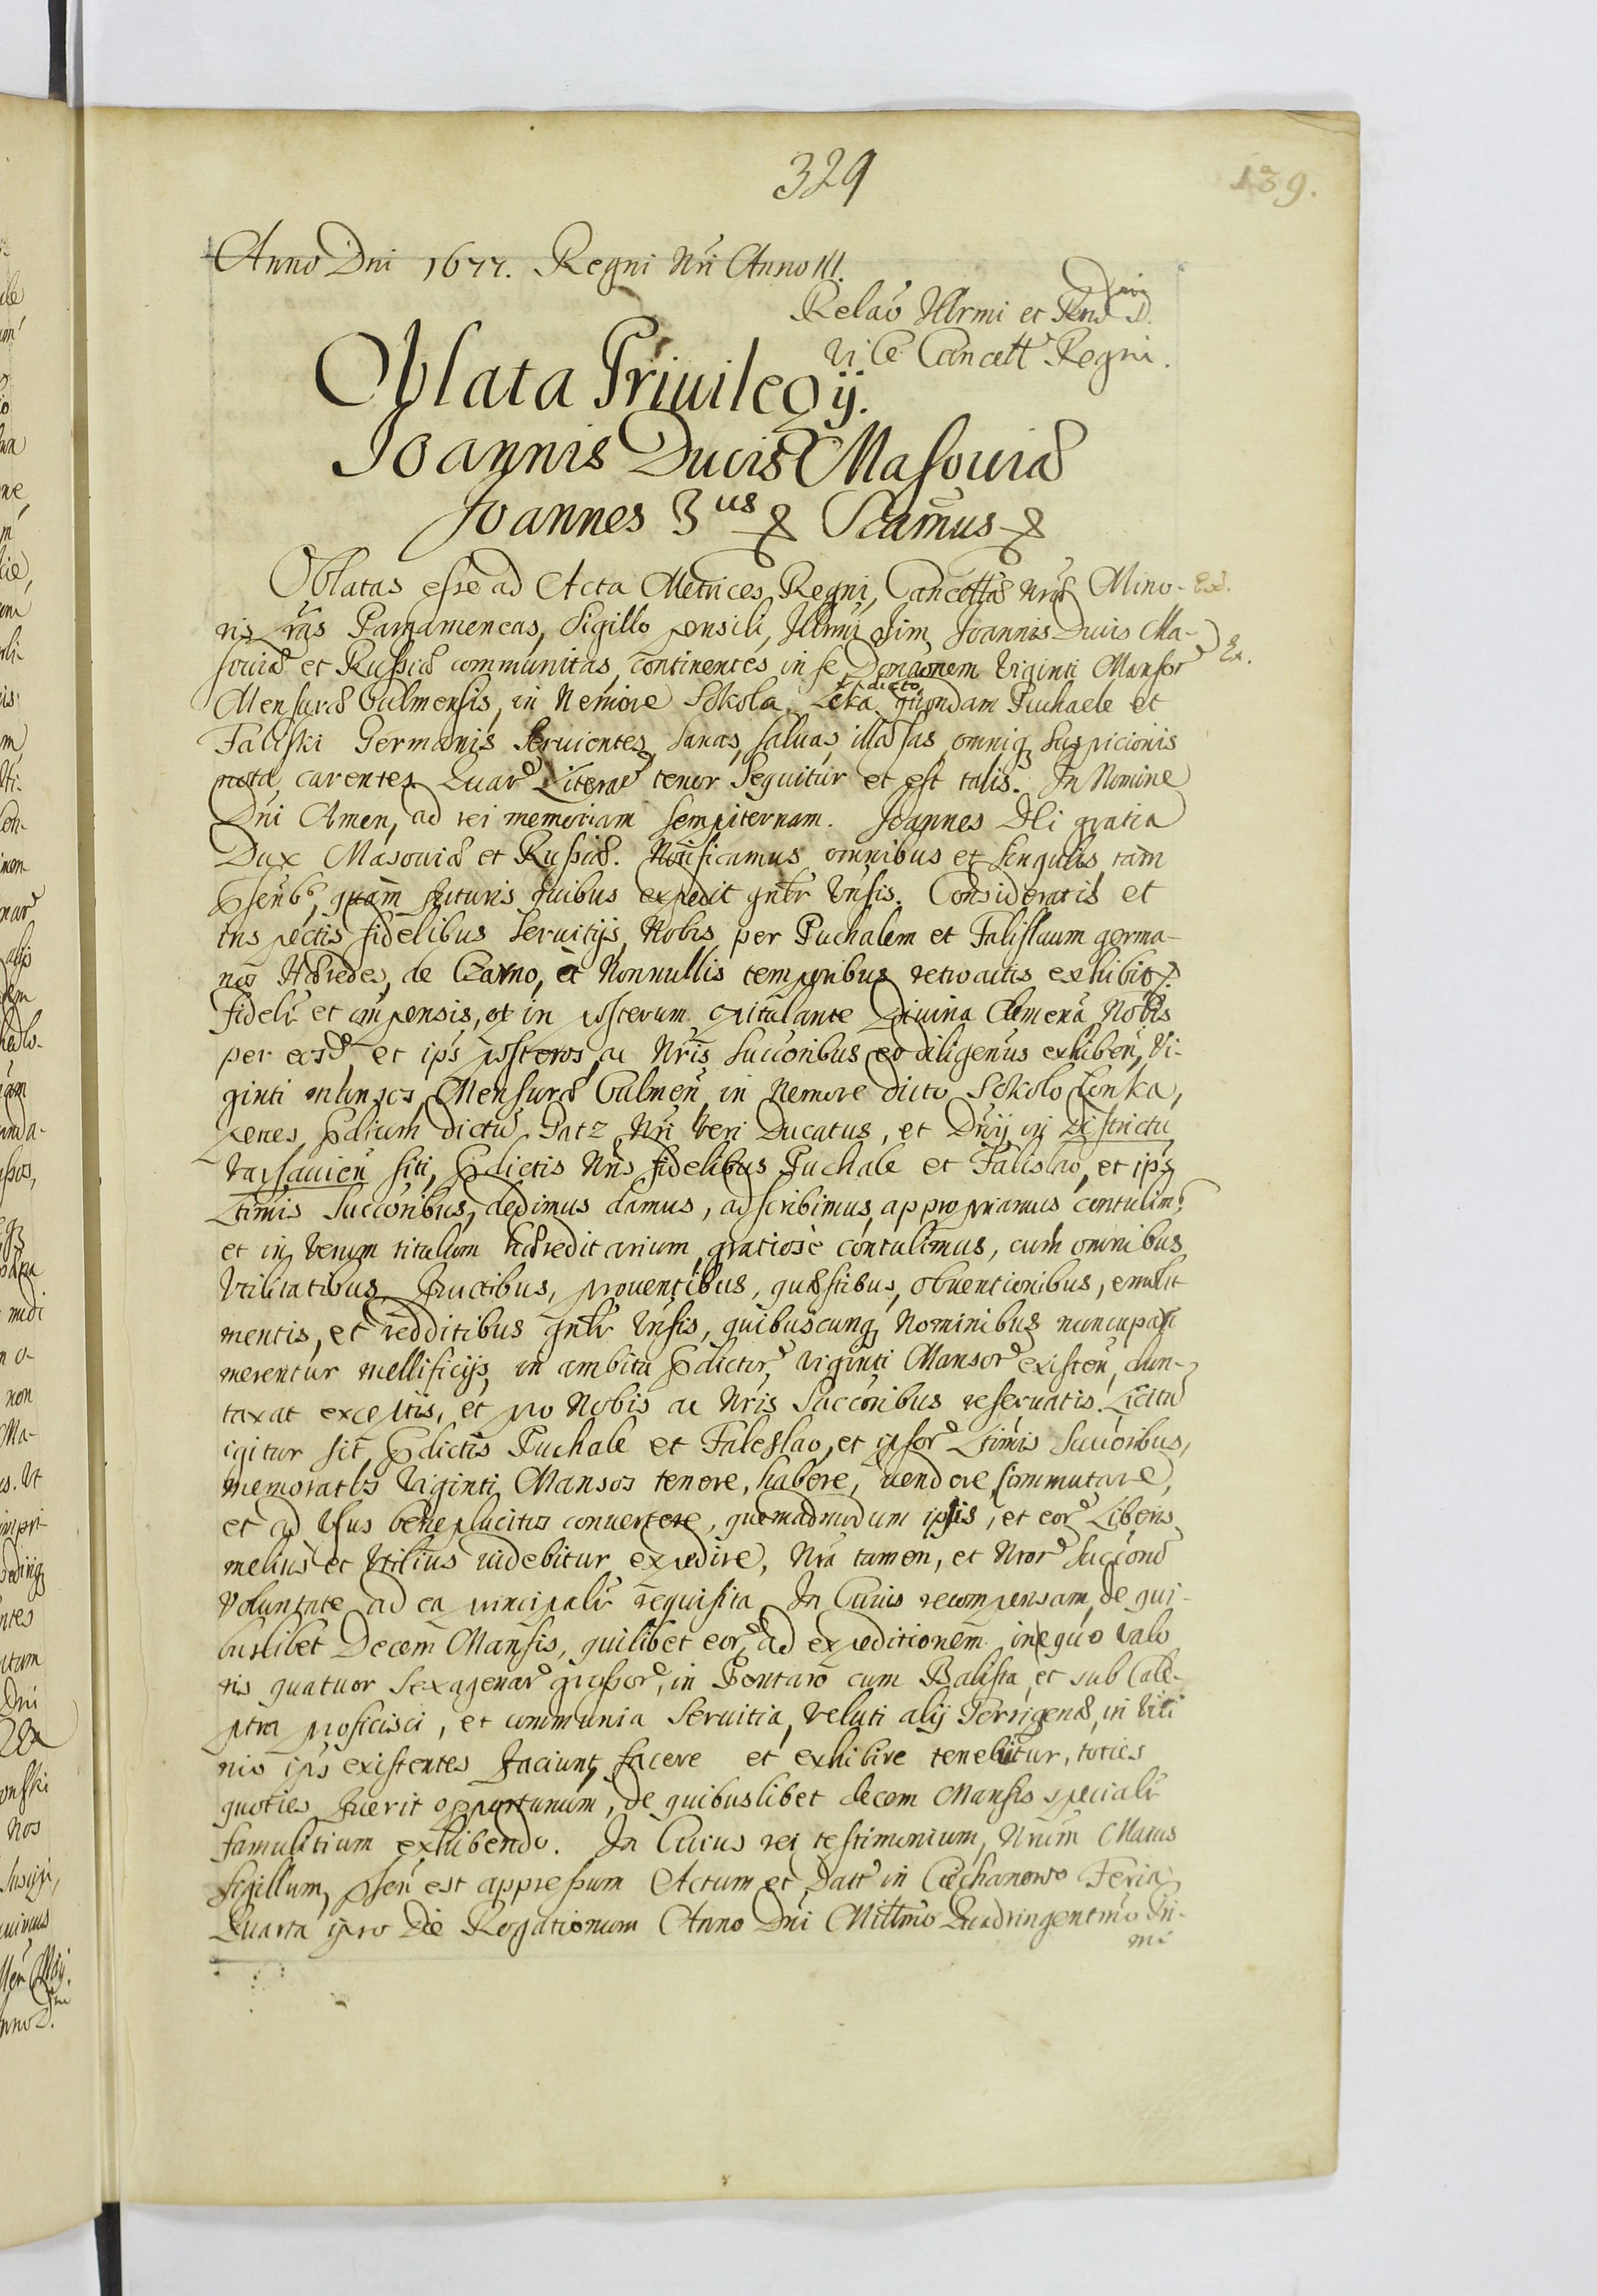 329
139.
Anno Dni 1677. Regni Nri Anno III.
Relaō Illrmi et Rndmi D.
Vice Cancell Regni.
Oblata Priuilegij.
Joannis Ducis Masouiæ
Joannes 3us & Scāmus &
Oblatas esse ad Acta Metrices Regni, Cancellæ Nræ Mino-
ris Lras Pargameneas, Sigillo pensili, Illrmi olim Joannis Ducis Ma-
souiæ et Russiæ communitas, continentes in se Donaonem Viginti Mansor
Mensuræ Culmensis, in Nemore Sokola Leka dicto quondam Puchaele et
Faliski Germanis Seruientes, Sanas, saluas, illæsas, omniq Suspicionis
nota carentes. Quar Literar tenor Sequitur et est talis. In Nomine
Dni Amen, ad rei memoriam sempiternam. Joannes Dei gratia
Dux Masouiæ et Russiæ. Notificamus omnibus et singulis, tam
pseñb, quam futuris quibus expedit gnlr Vnsis. Consideratis et
inspectis fidelibus Seruitijs, Nobis per Puchalem et Falislaum germa-
nos Hæredes, de Czarno, et Nonnullis temporibus retroactis exhibitis
fidelr et impensis, et in posterum opitulante Diuina Clemena Nobis
per eosd et ips posteros, ac Nris Succoribus eo diligenus exhiben, Vi-
ginti mansos, Mensuræ Culmen in Nemore dicto Sokolo Lonka,
penes pdium dictu Patz Nri Veri Ducatus, et Dnij in Districtu
Varsauien siti, pdictis Nris fidelibus Puchale et Falislao, et ips
Ltimis Succoribus, dedimus damus, adscribimus, appropriamus contulim9
et in verum titulum hæreditarium gratiose contulimus, cum omnibus
Vtilitatibus fructibus, prouentibus, quæstibus, obuentionibus, emolu
mentis, et redditibus gnlr Vnsis, quibuscunq Nominibus nuncupari
merentur mellificijs, in ambitu pdictor viginti Mansor existen, dun-
taxat exceptis, et pro Nobis ac Nris Succoribus reseruatis. Licitu
igitur sit pdictis Puchale et Faleslao, et ipsor Ltimis Succoribus,
memoratos Viginti Mansos tenere, habere, vendere commutare,
et ad Vsus beneplacitos conuertere, quemadmodum ipsis, et eor Liberis
melius et Vtilius videbitur expedire, Nra tamen, et Nror Succorū
Voluntate ad ea principalr requisita. In Cuius recompensam, de qui-
buslibet Decem Mansis, quilibet eor, ad expeditionem in equo Valo
ris quatuor Sexagenar grossor, in Pontaro cum Balista, et sub Cale-
ptra proficisci, et communia Seruitia, veluti alij Terrigenæ, in Vici
nio ips existentes faciunt, facere et exhibire tenebitur, toties
quoties fuerit opportunum, de quibuslibet decem Mansis specialr
famulitium exhibendo. In Cuius rei testimonium, Nrum Maius
sigillum, psen est appressum Actum et Datt in Ciechanowo Feria
Quarta ipso Die Rogationum Anno Dni Millmo Quadringentmo Pri-
mo